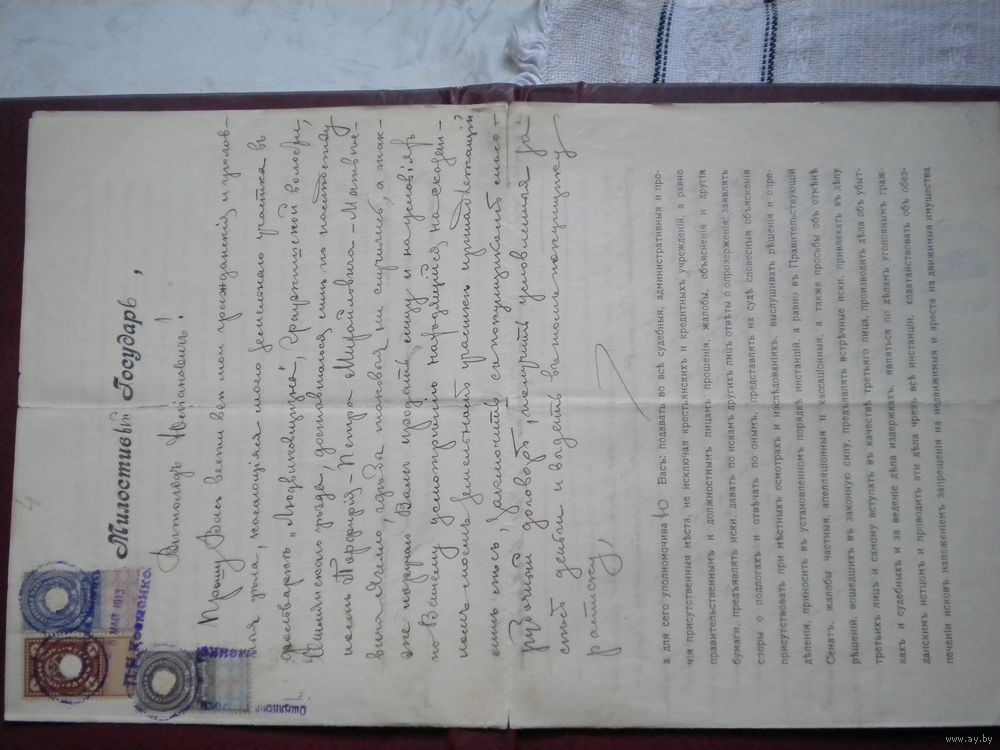 4
Милостивый Государь,
8 МАЯ 1913
Ошмянскій
Витольдъ Юстиновичъ!
Прошу Васъ вести всѣ мои гражданскія и уголов-
ныя дѣла, касающіяся моего земельнаго участка въ
"Людвиновщизна", волости,
Ошмянскаго уѣзда, доставшагося мнѣ по наслѣдству
Петра Михайловича
вина дѣла, гдѣ-бы таковыя ни случились, а так-
же поручаю Вамъ продать, кому и на условіяхъ
по Вашему усмотрѣнію находящійся на сказан-
номъ моемъ земельномъ участкѣ принадлежащій
мнѣ лѣсъ, заключить съ покупщикомъ лѣсо-
рубочный договоръ, получить условленныя за
лѣсъ деньги и выдать въ томъ покупщику
расписку,
а для сего уполномочиваю Васъ: подавать во всѣ судебныя, административныя и про-
чія присутственныя мѣста, не исключая крестьянскихъ и кредитныхъ учрежденій, а равно
правительственнымъ и должностнымъ лицамъ прошенія, жалобы, объясненія и другія
бумаги, предъявлять иски, давать по искамъ другихъ лицъ отвѣты о опроверженія; заявлять
споры о подлогахъ и отвѣчать по онымъ, представлять на судѣ словесныя объясненія
присутствовать при мѣстныхъ осмотрахъ и изслѣдованіяхъ, выслушивать рѣшенія и опре-
дѣленія, приносить въ установленномъ порядкѣ инстанцій, а равно въ Правительствующій
Сенатъ, жалобы частныя, апелляціонныя и кассаціонныя, а также просьбы объ отмѣнѣ
рѣшеній, вошедшихъ въ законную силу, предъявлять встрѣчные иски, привлекать къ дѣлу
третьихъ лицъ и самому вступать въ качествѣ третьяго лица, производить дѣла объ убыт-
кахъ и судебныхъ и за веденіе дѣла издержкахъ, являться по дѣламъ уголовнымъ граж
данскимъ истцомъ и проводить эти дѣла чрезъ всѣ инстанціи, ходатайствовать объ обез-
печеніи исковъ наложеніемъ запрещенія на недвижимыя и ареста на движимыя имущества
www.ay.by